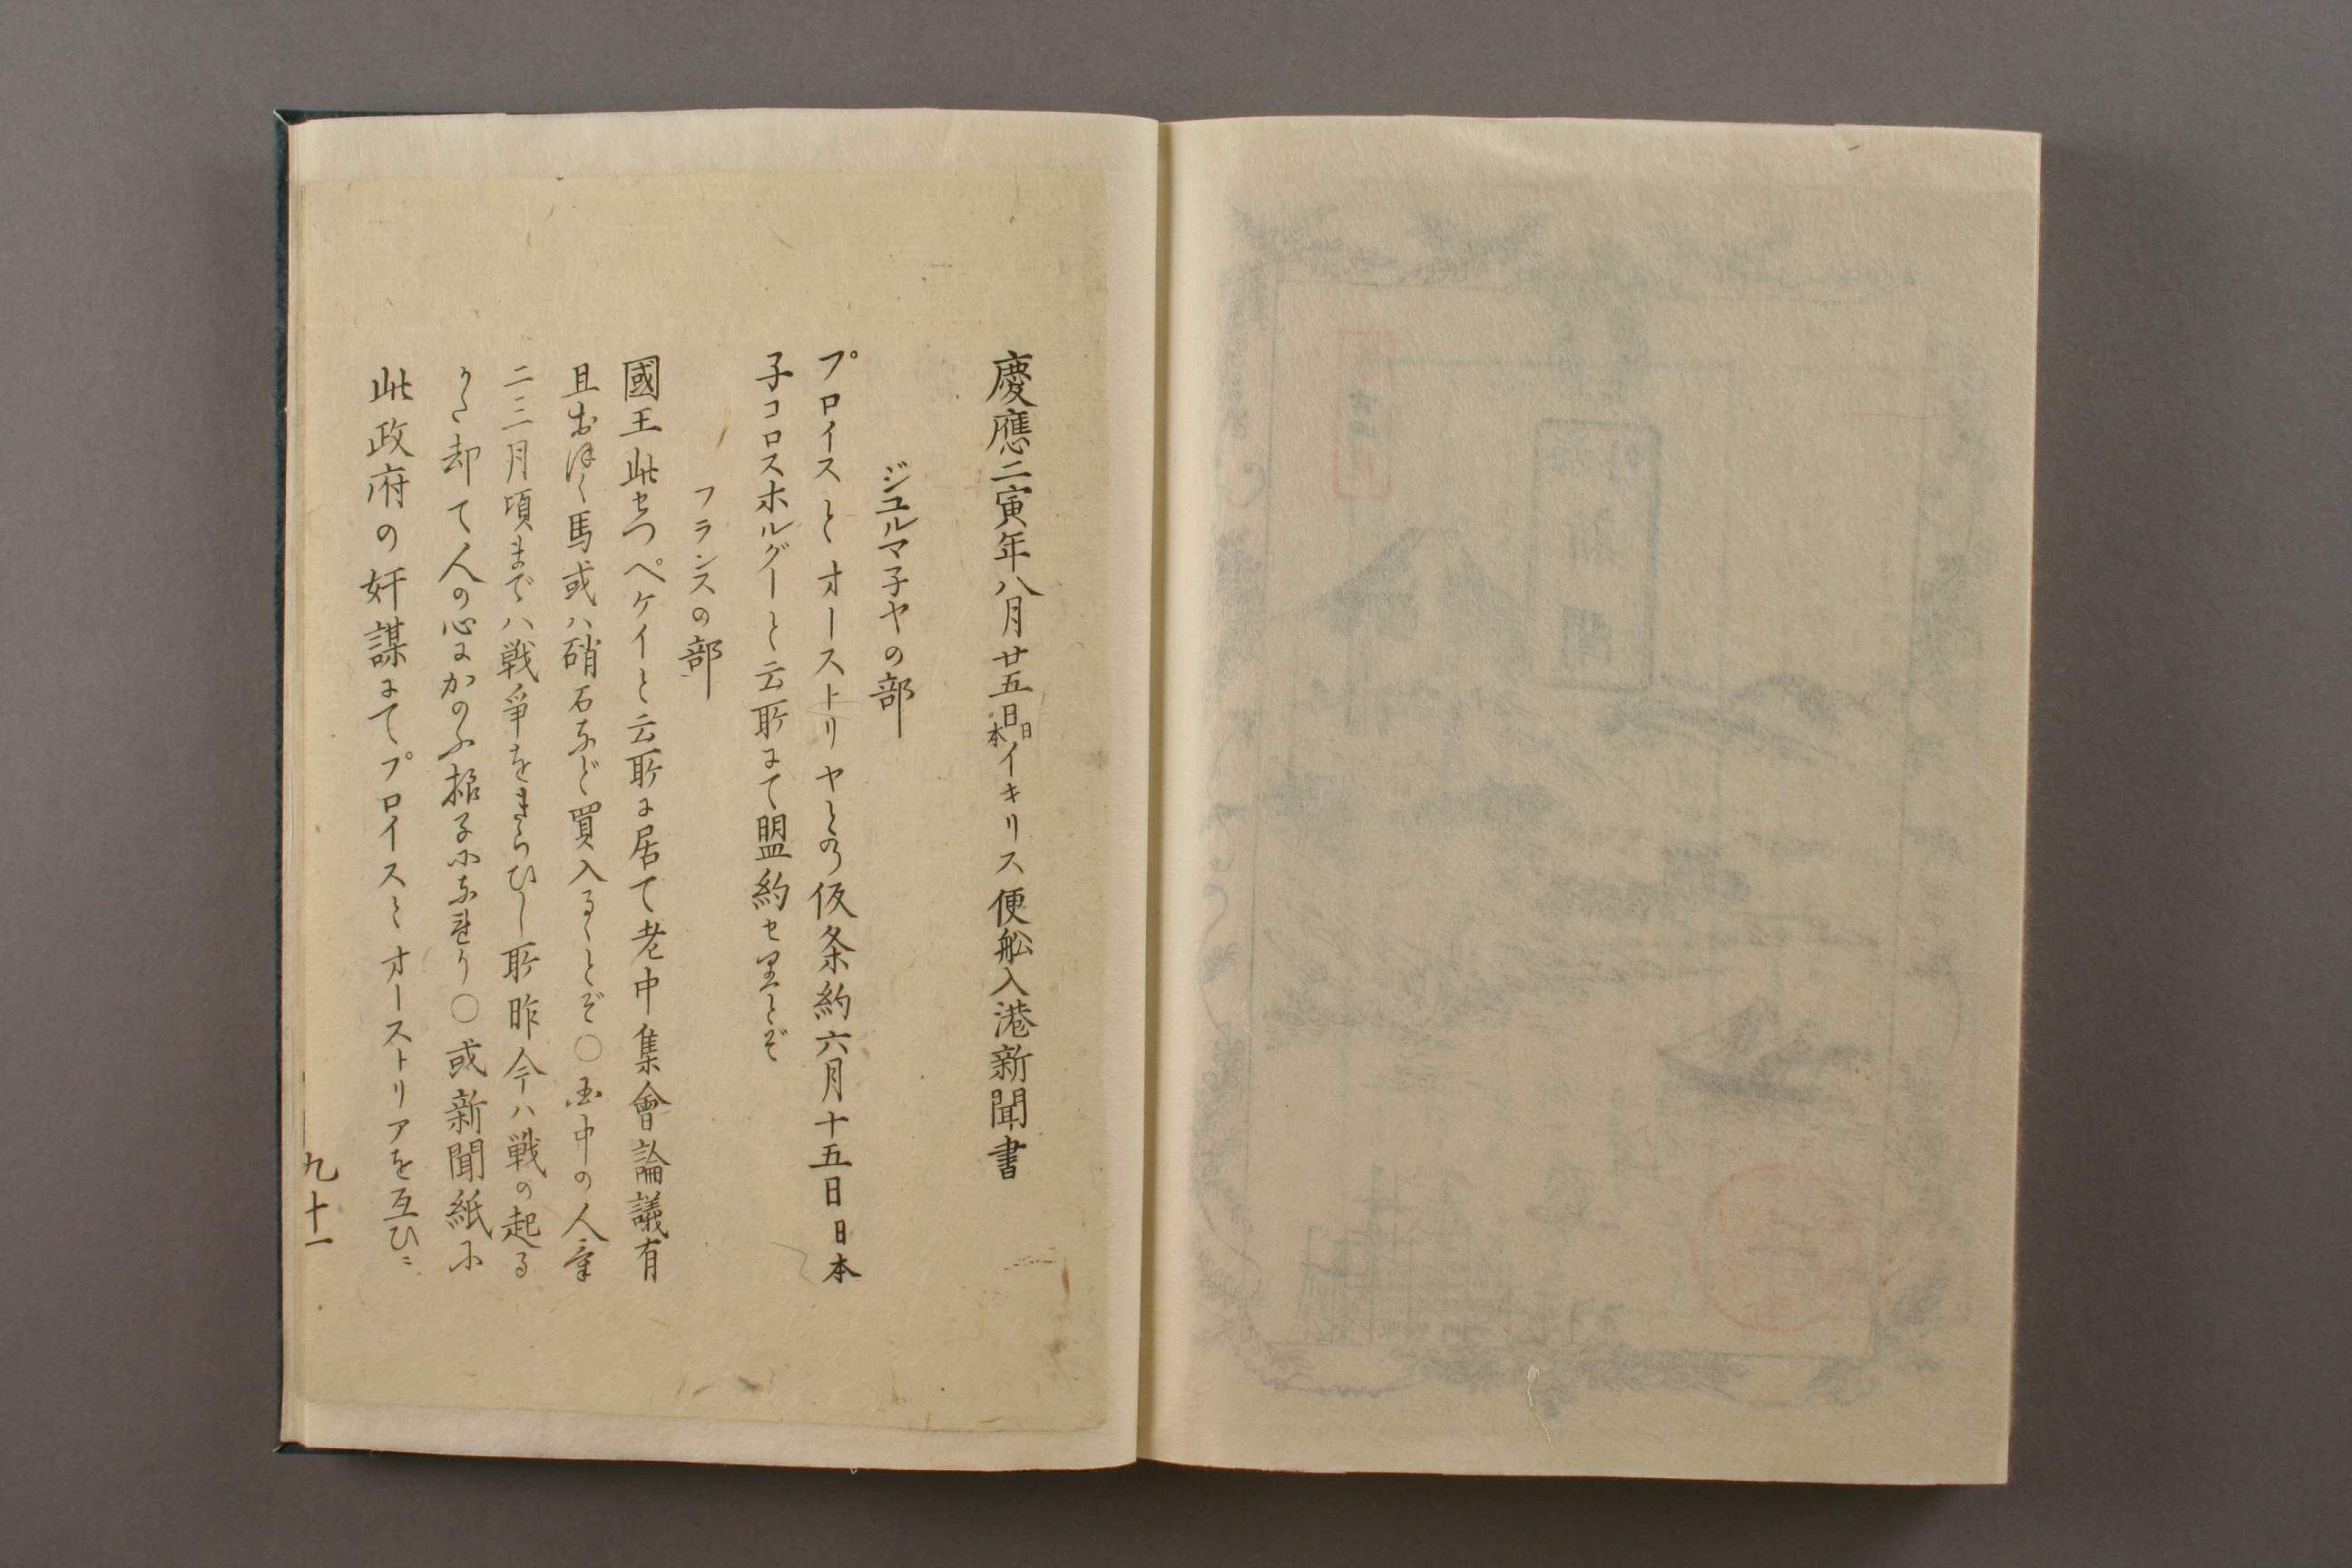 慶應二寅年八月廿五日日本イキリス便舩入港新聞書
ジユルマ子ヤの部
プロイスとオーストリヤとの仮条約六月十五日日本
子コロスホルグーと云所にて盟約セりとぞ
フランスの部
國王此せつペケイと云所に居て老中集會論議有
且おほく馬或ハ硝石など買入るゝとぞ○国中の人氣
二三月頃までハ戦爭をきらひし所昨今ハ戦の起る
かた却て人の心にかのふ様子になれり○或新聞紙に
此政府の奸謀にてプロイスとオーストリアを互ひニ
九十一